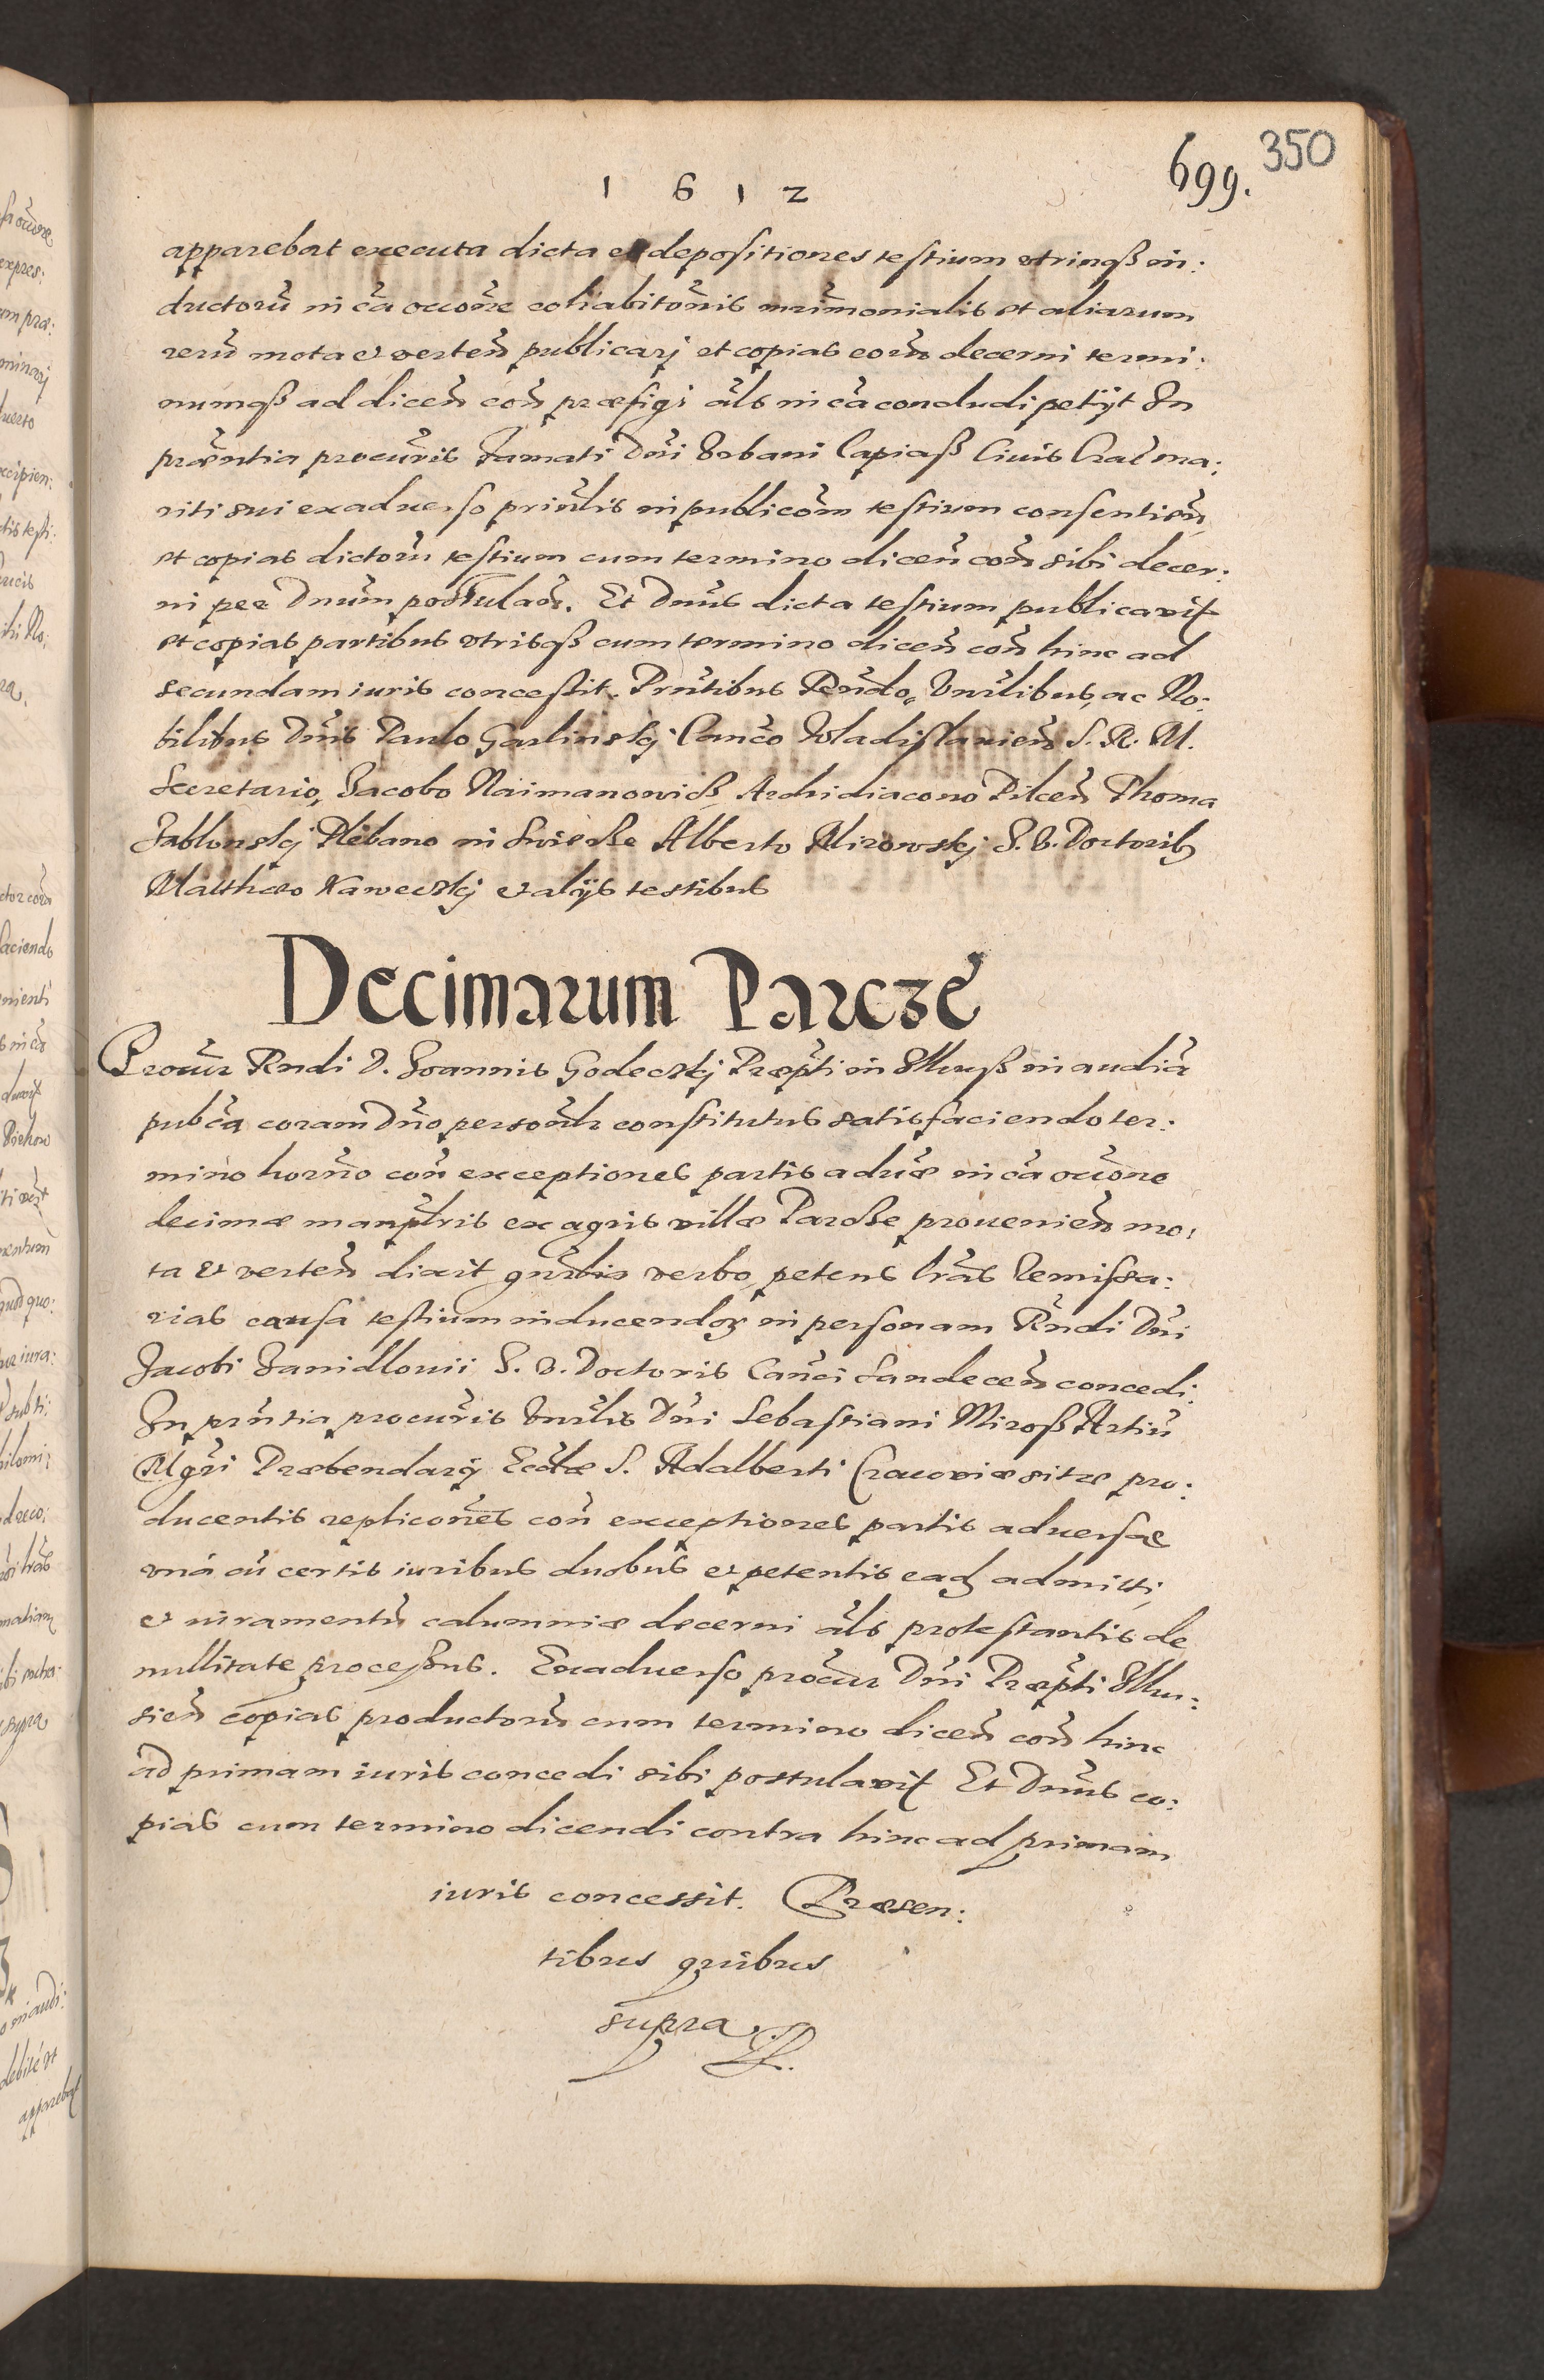 350
699.
1 6 1 2
apparebat executa dicta et depositiones testium utrinqß in:
ductorũ in cã occõne cohabitõnis mrimonialis et aliarum
rerũ mota et verteñ publicarj et copias eorũ decerni termi:
numqß ad diceñ coñ præfigi als in cã concludi petÿt In
præntia procuris Famati Dñi Urbani Capiaß Civis Crac ma:
riti sui ex adverso prinlis in publicõm testium consentieñ
et copias dictorũ testium cum termino diceñ coñ sibi decer:
ni per Dnum postulañ. Et Dnus dicta testium publicavit
et copias partibus utrisqß cum termino diceñ coñ hinc ad
secundam iuris concessit. Prntibus Rendo, Vnrlibus, ac No:
bilibus Dnis Paulo Garlinskj Canco Wladislavieñ S. R. M.
Secretario, Jacobo Naimanowicß Archidiacono Pilceñ Thoma
Jablonskj Plebano in Swierße Alberto Mirowskj S. V. Doctorib
Matthæo Kaweczkj et alÿs testibus
Decimarum Parcze
Procur Rndi D. Joannis Godeczkj Præpti in Ilkuß in audia
pubca coram Dño personlr constitutus satisfaciendo ter:
mino horno coñ exceptiones partis advæ in cã occõne
decimæ manplris ex agris villæ Parcße provenieñ mo:
ta et verteñ dixit gnrlia verbo, petens lras Remissa:
rias causa testium inducendor in personam Rndi Dñi
Jacobi Janidlovii S. V. Doctoris Canci Sandeceñ concedi.
In prntia procuris Vnrlis Dñi Sebastiani Miroß Artiũ
Mgri Præbendarÿ Ecclæ S. Adalberti Cracoviæ sitæ pro:
ducentis replicones coñ exceptiones partis adversæ
una cũ certis iuribus duobus et petentis ead admitti,
et iuramentũ calumniæ decerni als protestantis de
nullitate processus. Ex adverso procur Dñi Præpti Ilku:
sieñ copias productorũ cum termino diceñ coñ hinc
ad primam iuris concedi sibi postulavit Et Dnus co:
pias cum termino dicendi contra hinc ad primam
iuris concessit. Præsen:
tibus quibus
supra.